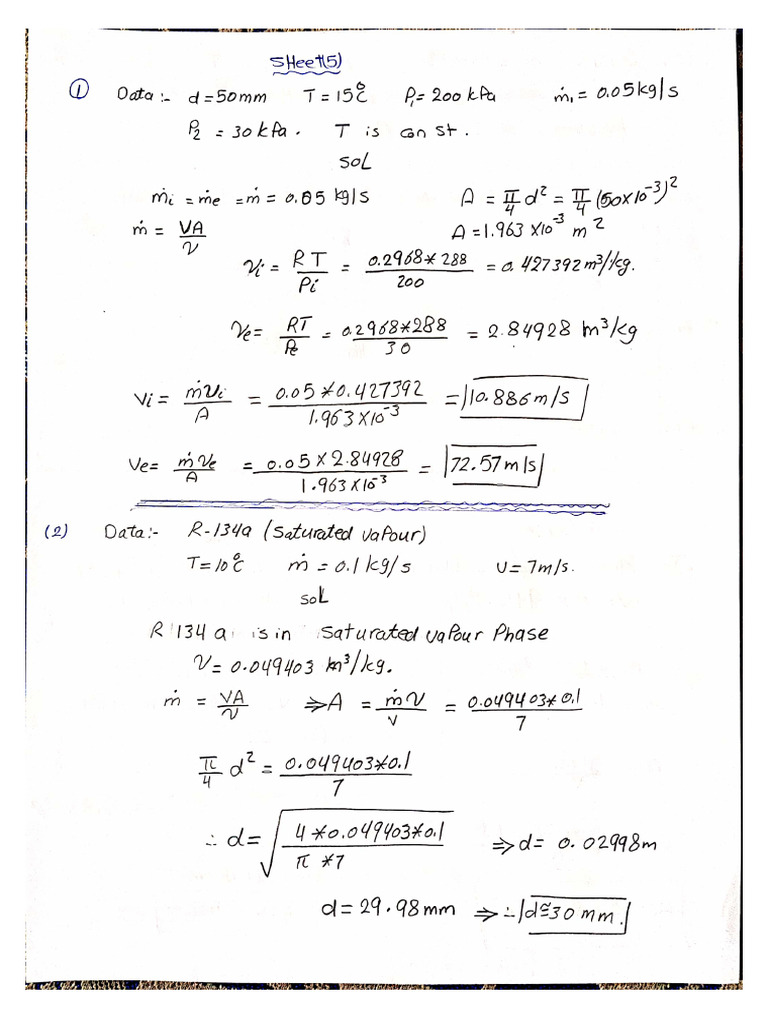 SHeet(5)
① Data:- d=50mm T=15°C P₁=200kPa ṁ₁=0.05kg/s
P₂=30kPa. T is const.
SOL
ṁi=ṁe=ṁ=0.05 kg/s A=π/4 d²=π/4 (50x10⁻³)²
ṁ=VA/𝒱 A=1.963x10⁻³ m²
𝒱i=RT/Pi=0.2968*288/200=0.427392m³/kg.
𝒱e=RT/Pe=0.2968*288/30=2.84928 m³/kg
Vi=ṁ𝒱i/A=0.05*0.427392/1.963x10⁻³=|10.886m/s
Ve=ṁ𝒱e/A=0.05x2.84928/1.963x10⁻³=|72.57m/s|
(2) Data:- R-134a (Saturated vaPour)
T=10°C ṁ=0.1kg/s υ=7m/s.
SOL
R 134a is in saturated vaPour Phase
𝒱=0.049403 m³/kg.
ṁ=VA/𝒱 ⇒A=ṁ𝒱/V=0.049403*0.1/7
π/4 d²=0.049403*0.1/7
∴d=√(4*0.049403*0.1/π*7) ⇒d=0.02998m
d=29.98mm ⇒∴|d≅30mm.|